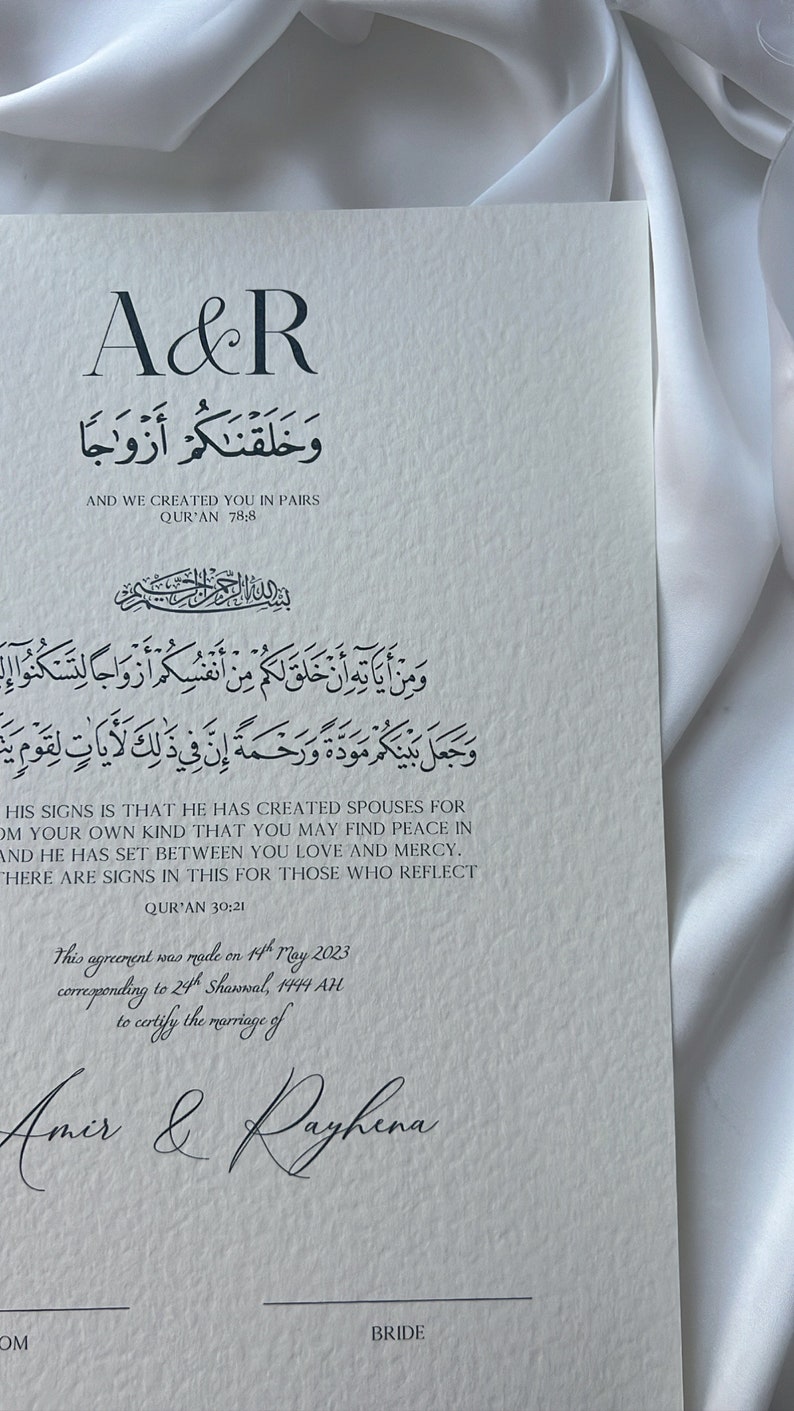 A&R
وَخَلَقْنَٰكُمْ أَزْوَٰجًا
AND WE CREATED YOU IN PAIRS
QUR'AN 78:8
بِسْمِ اللهِ الرَّحْمٰنِ الرَّحِيْمِ
وَمِنْ أَيَاتِهِ أَنْ خَلَقَ لَكُمْ مِنْ أَنْفُسِكُمْ أَزْوَاجًا لِتَسْكُنُوا
وَجَعَلَ بَيْنَكُمْ مَوَدَّةً وَرَحْمَةً إِنَّ فِي ذَٰلِكَ لَأَيَاتٍ لِقَوْمٍ
HIS SIGNS IS THAT HE HAS CREATED SPOUSES FOR
OM YOUR OWN KIND THAT YOU MAY FIND PEACE IN
AND HE HAS SET BETWEEN YOU LOVE AND MERCY.
THERE ARE SIGNS IN THIS FOR THOSE WHO REFLECT
QUR'AN 30:21
This agreement was made on 14th May 2023
corresponding to 24th Shawwal, 1444 AH
to certify the marriage of
Amir & Rayhena
OM BRIDE